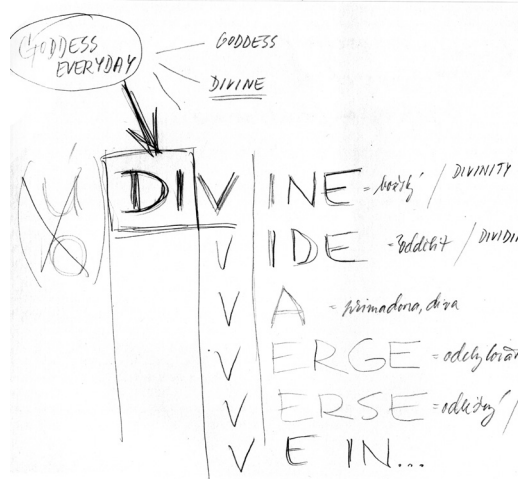 GODDESS
EVERYDAY
GODDESS
DIVINE
Ú
O
DIV INE = božský / DIVINITY
V IDE = oddělit / DIVIDIN
V A = primadona, diva
V ERGE = odchylován
V ERSE = odlišný /
V E IN...